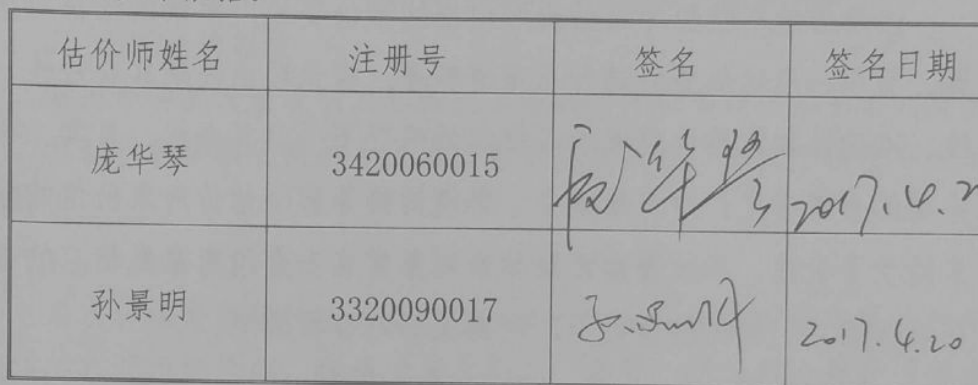 估价师姓名 注册号 签名 签名日期
庞华琴 3420060015 庞华琴 2017.4.2
孙景明 3320090017 孙景明 2017.4.20